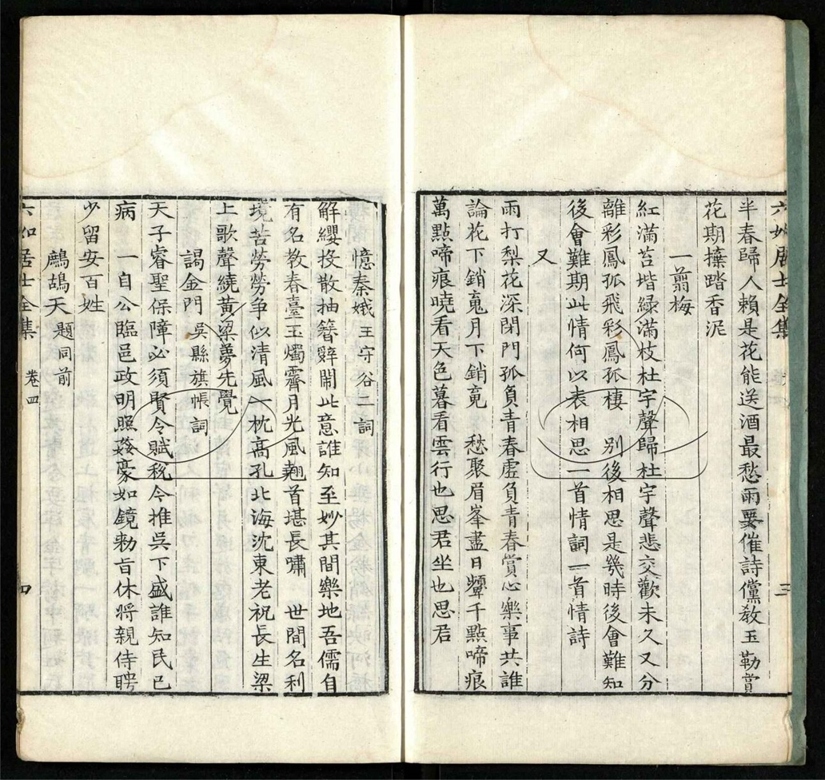 六如居士全集
三
半春歸人賴是花能送酒最愁雨要催詩儻教玉勒賞
花期擁踏香泥
一翦梅
紅滿苔堦綠滿枝杜宇聲歸杜宇聲悲交歡未久又分
離彩鳳孤飛彩鳳孤棲　別後相思是幾時後會難知
後會難期此情何以表相思一首情詞一首情詩
又
雨打梨花深閉門孤負青春虛負青春賞心樂事共誰
論花下銷䰟月下銷䰟　愁聚眉峯盡日顰千點啼痕
萬點啼痕曉看天色暮看雲行也思君坐也思君
憶秦娥王守谷二詞
解纓投散抽簪辭鬧此意誰知至妙其間樂地吾儒自
有名教春臺玉燭霽月光風翹首堪長嘯　世間名利
境苦勞勞爭似清風一枕高孔北海沈東老祝長生梁
上歌聲繞黃粱夢先覺
謁金門吳縣旗帳詞
天子睿聖保障必須賢令賦稅今推吳下盛誰知民已
病　一自公臨邑政明照姦豪如鏡勅旨休將親侍聘
少留安百姓
鷓鴣天題同前
六如居士全集　卷四
四